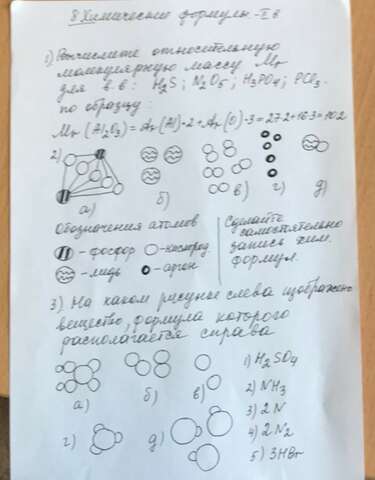 8 Химические формулы - II в
1) Вычислите относительную
молекулярную массу Mr
для в-в: H₂S; N₂O₅; H₃PO₄; PCl₃.
по образцу:
Mr (Al₂O₃) = Ar(Al)·2 + Ar(O)·3 = 27·2+16·3=102
2)
а) б) в) г) д)
Обозначения атомов
- фосфор - кислород
- медь - аргон
Сделайте
самостоятельно
запись хим.
формул.
3) На каком рисунке слева изображено
вещество, формула которого
располагается справа
а) б) в)
г) д)
1) H₂SO₄
2) NH₃
3) 2N
4) 2N₂
5) 3HBr